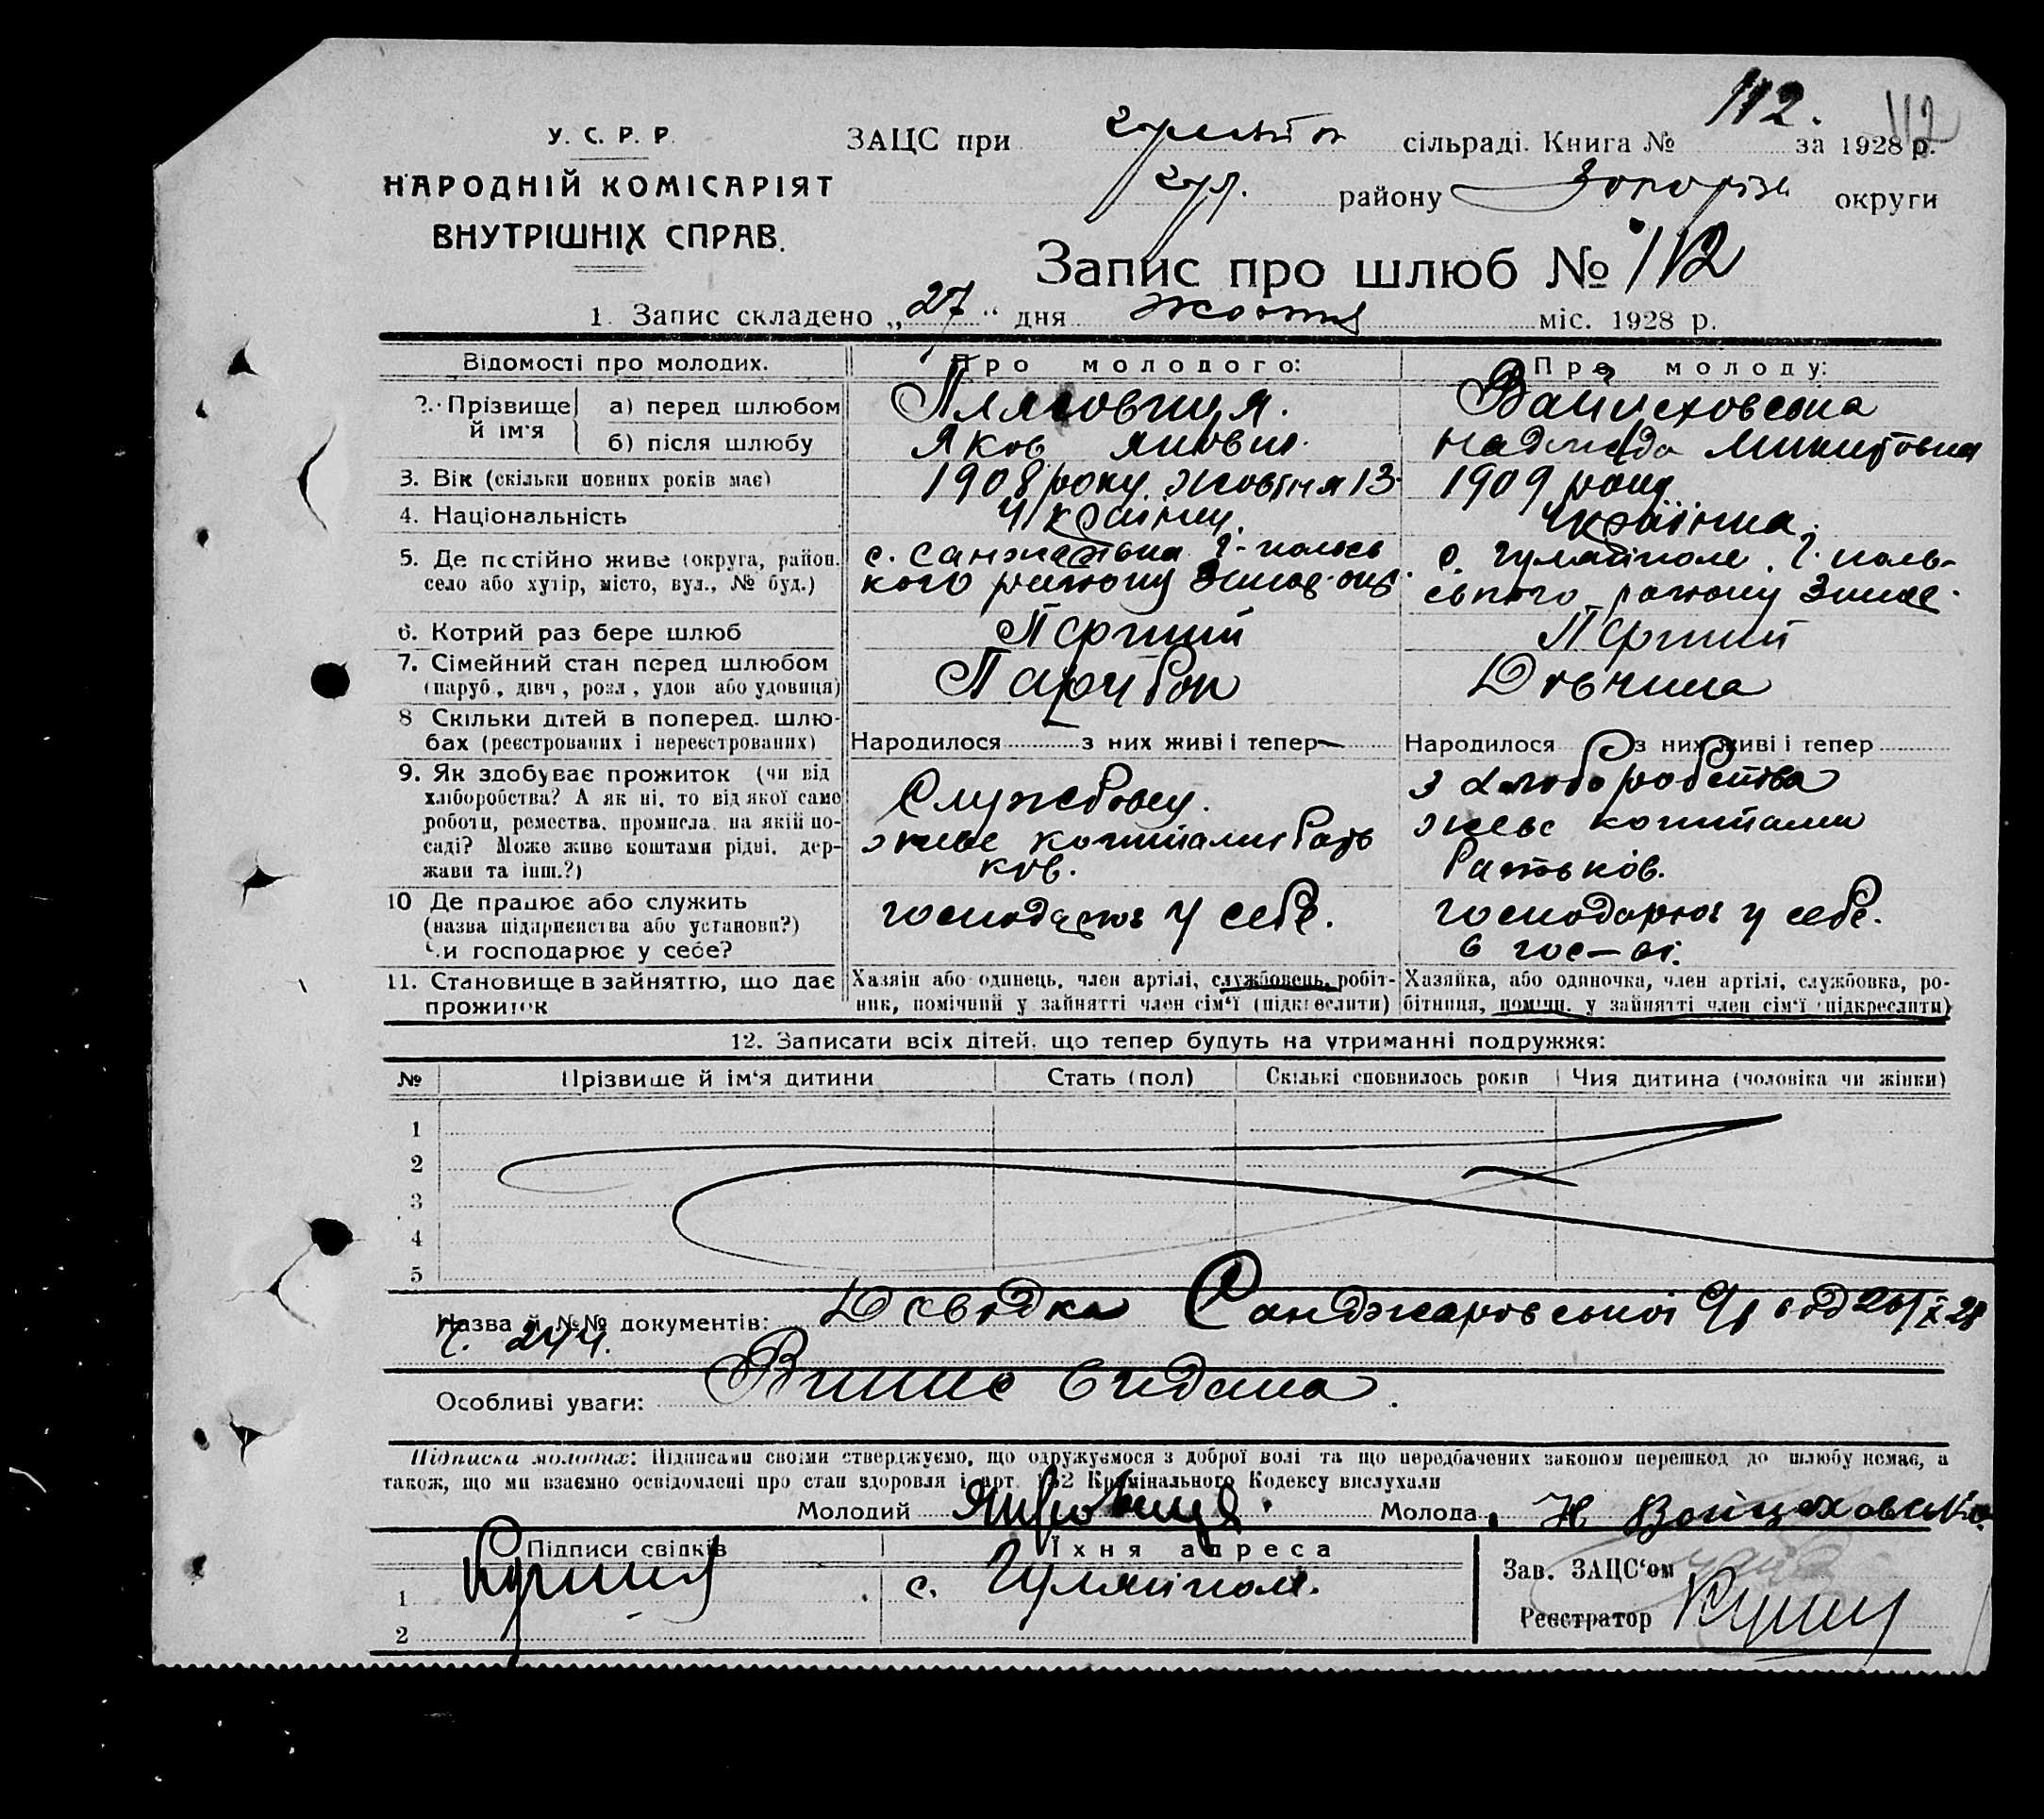 112. 112
У. С. Р. Р.
НАРОДНІЙ КОМІСАРІЯТ
ВНУТРІШНІХ СПРАВ.
ЗАЦС при сільраді. Книга № за 1928 р.
району округи
Запис про шлюб № 112
1. Запис складено „27“ дня жовтня міс. 1928 р.
Відомості про молодих. Про молодого: Про молоду:
2. Прізвище й ім'я а) перед шлюбом
б) після шлюбу
Яков Надежда Микитовна
3. Вік (скільки повних років має) 1908 року жовтня 13 1909 року
4. Національність Українец. Українка.
5. Де постійно живе (округа, район, село або хутір, місто, вул., № буд.)
с. Гуляйполе
кого району району
6. Котрий раз бере шлюб Перший Перший
7. Сімейний стан перед шлюбом (паруб., дівч., розл., удов. або удовиця) Парубок Дівчина
8 Скільки дітей в поперед. шлюбах (реєстрованих і нереєстрованих) Народилося з них живі і тепер— Народилося з них живі і тепер
9. Як здобуває прожиток (чи від хліборобства? А як ні, то від якої саме роботи, ремества, промисла, на якій посаді? Може живе коштами рідні, держави та інш.?)
Службовец.
живе коштами батьков.
з хлиборобства
живе коштами
батьков.
10 Де працює або служить (назва підприємства або установи?) Чи господарює у себе?
господарює у себе.
господарює у себе.
в гос-ві.
11. Становище в зайняттю, що дає прожиток
Хазяїн або одинець, член артілі, службовець, робітник, помічний у зайнятті член сім‘ї (підкреслити)
Хазяйка, або одиночка, член артілі, службовка, робітниця, помічн. у зайнятті член сім‘ї (підкреслити)
12. Записати всіх дітей, що тепер будуть на утриманні подружжя:
№ Прізвище й ім‘я дитини Стать (пол) Скількі сповнилось років Чия дитина (чоловіка чи жінки)
1
2
3
4
5
Назва й №№ документів: Довідка Санджаровської с/р від 26/X 28
Ч. 244.
Особливі уваги: Випис видана.
Підписка молодих: Підписами своїми стверджуємо, що одружуємося з доброї волі та що передбачених законом перешкод до шлюбу немає, а
також, що ми взаємно освідомлені про стан здоровля і арт. 152 Кримінального Кодексу вислухали
Молодий Молода Н Войцеховська
Підписи свідків Їхня адреса
1 с. Гуляйполе.
2
Зав. ЗАЦС‘ом
Реєстратор